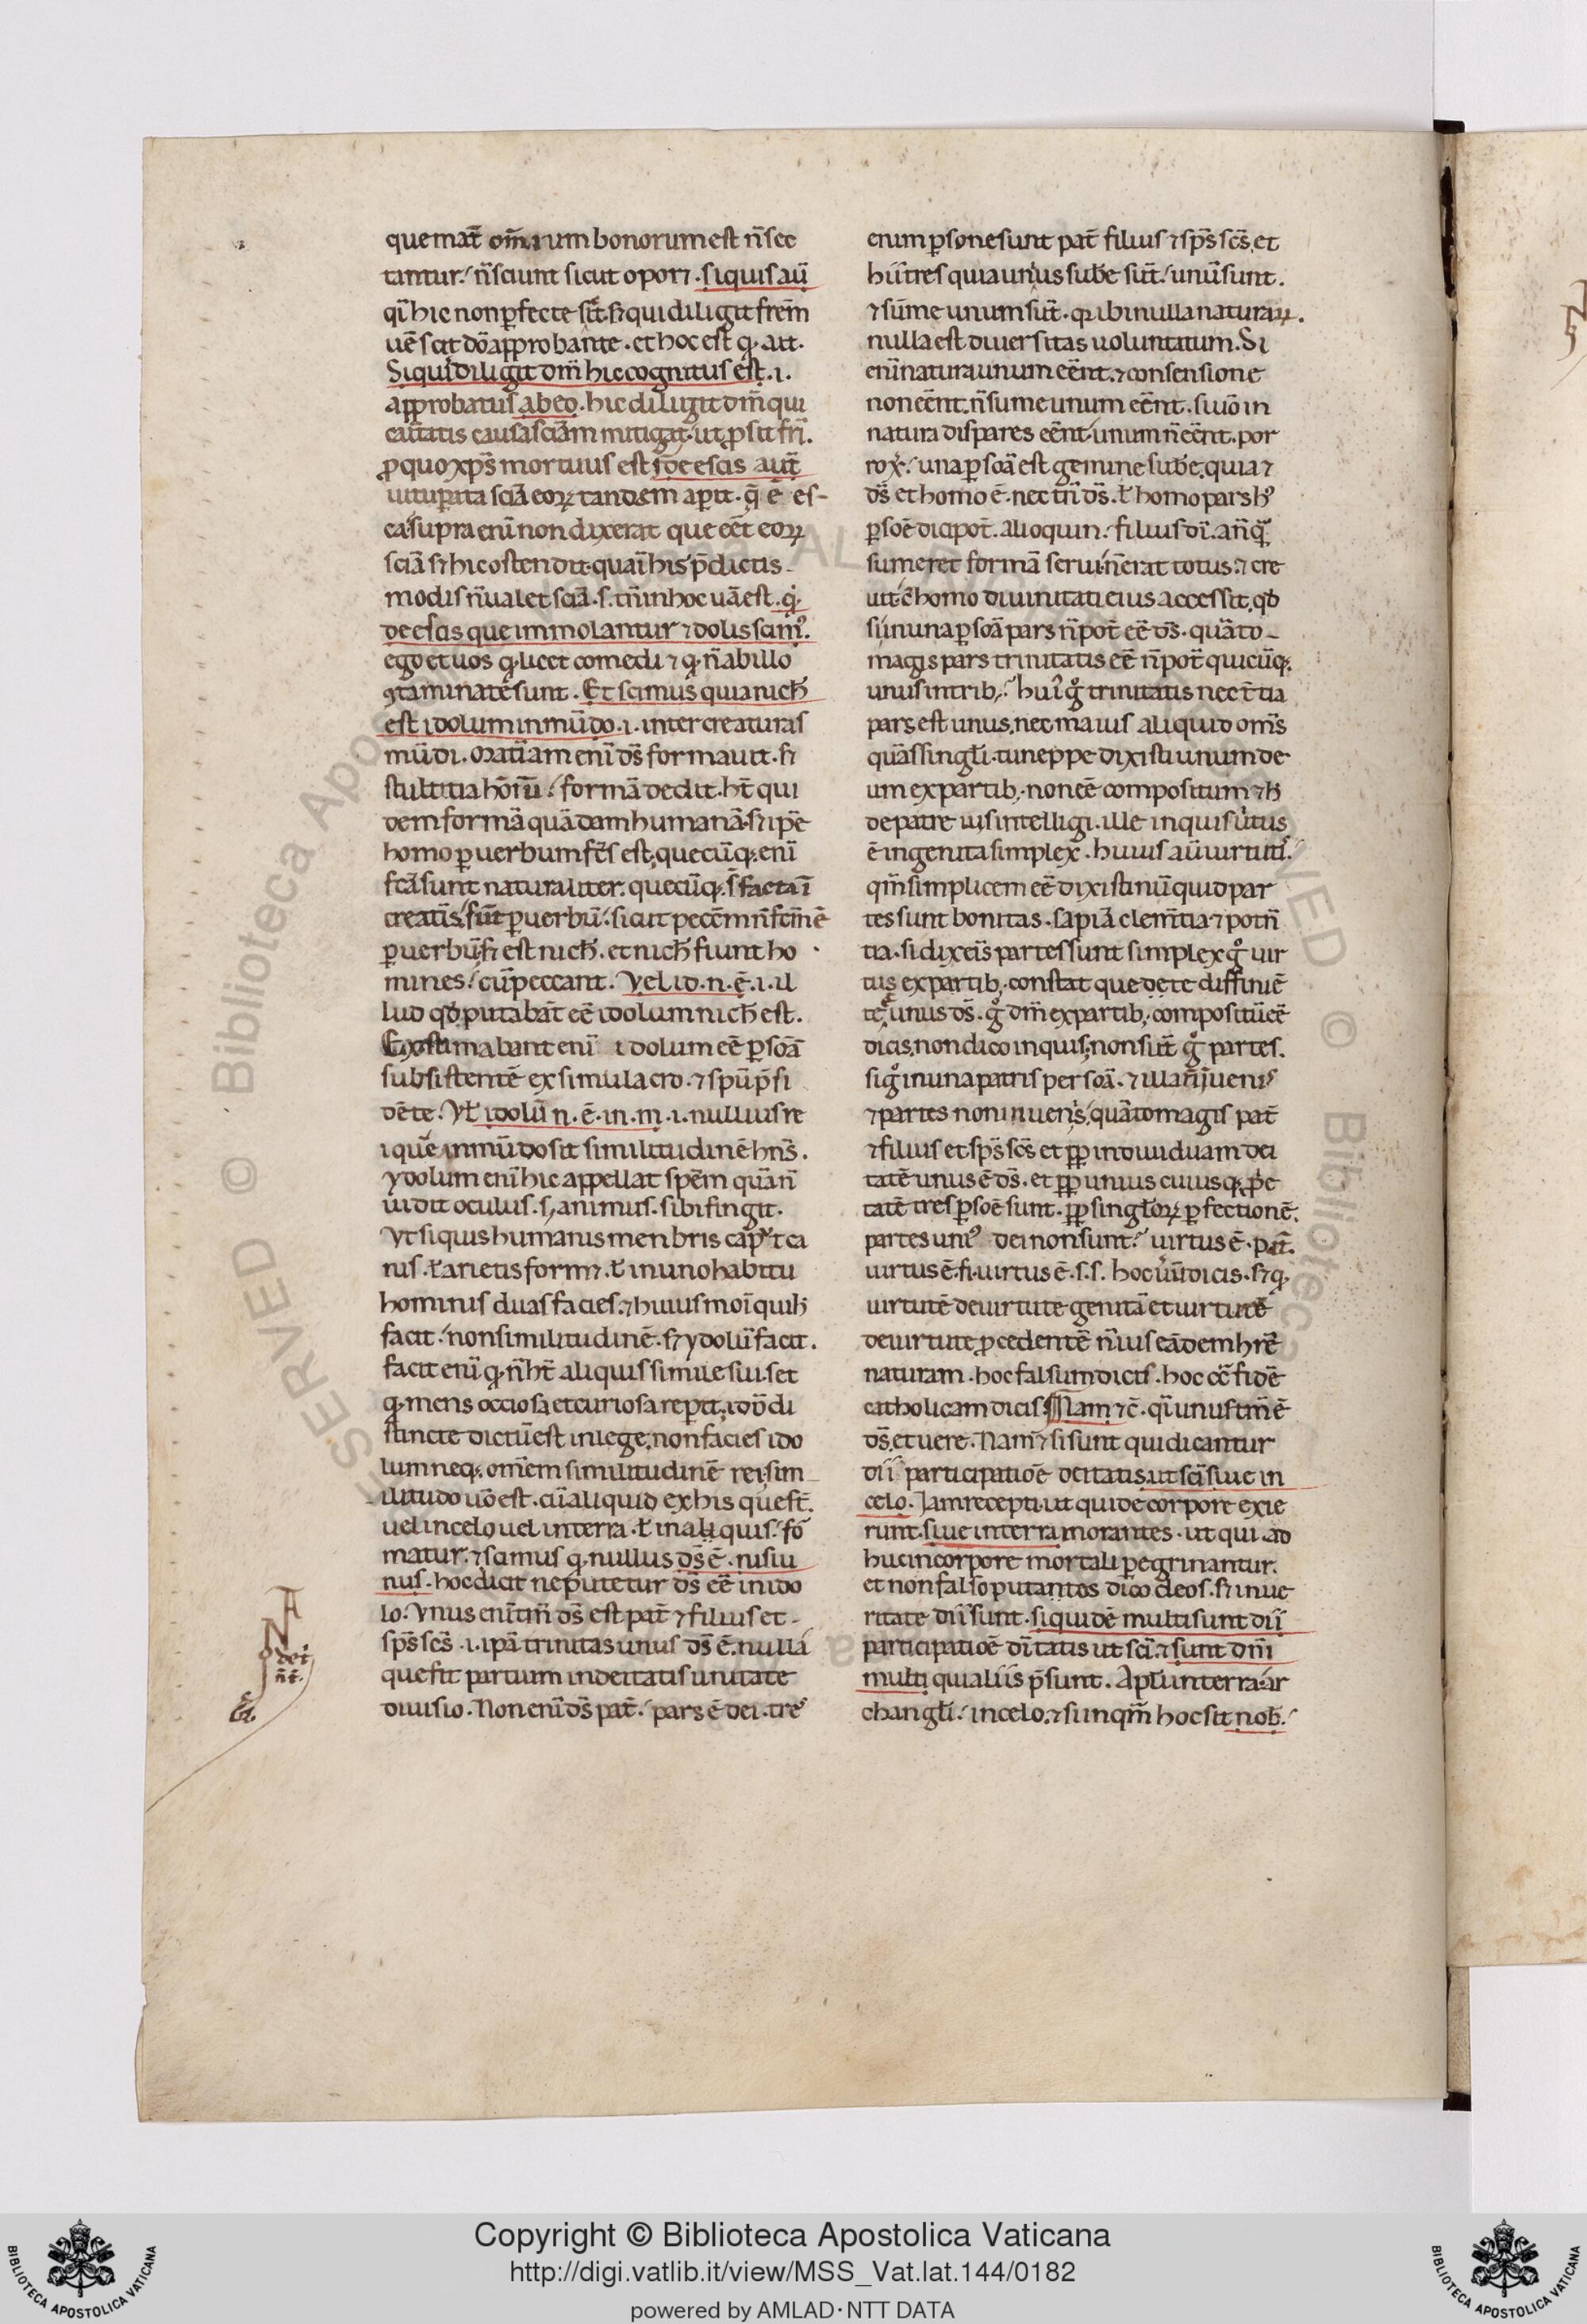 que mat̄ om̄ium bonorum est n̄ sec
tantur. n̄ sciunt sicut oport&. siquis aū
qͥ hic non ꝑfecte scit. sꝫ qui diligit frēm
uē scit dō approbante. et hoc est qͥ ait.
Siquis diligit dm̄ hic cognitus est. i.
approbatus ab eo. hic diligit dm̄ qui
caritatis causa sciam mitigat. ut ꝓsit fri.
ꝓ quo xp̄s mortuus est. de escis aut̄
uitupata scīa eoꝝ tandem apit. q̄ ē es-
ca. supra enī non dixerat que eēt eoꝝ
scīa sꝫ hic ostendit. quā his p̄dictis
modis n̄ ualet scīa. s. tn̄ in hoc uā est. q.
de escis que immolantur ydolis scimꝰ.
ego et uos q. licet comedi & q. n̄ ab illo
ꝯtaminate sunt. Et scimus quia nich̄
est idolum in mūdo. i. inter creaturas
mūdi. Materiam enī ds̄ formauit. sꝫ
stultitia hoīum formā dedit. ht̄ qui
dem formā quādam humanā. sꝫ ipse
homo ꝑ uerbum fc̄s est. quecūqꝫ enī
fc̄a sunt naturaliter. quecūqꝫ s̄ facta ī
creatis sūt ꝑ uerbū. sicut peccm̄ n̄ fcm̄ ē
ꝑ uerbū. sꝫ est nich̄. et nich̄ fiunt ho
mines cū peccant. Vel id. n. ē. i. il
lud qd̄ putabāt eē idolum nich̄ est.
Existimabant enī idolum eē ꝑsoā
subsistentē ex simulacro. & spū p̄si
dēte. Vł idolū n. ē. in. m. i. nullius re
i que in mūdo sit similitudinē hn̄s.
ydolum enī hic appellat spēm quā n̄
uidit oculus. sꝫ animus sibi fingit.
Vt siquis humanis menbris capͭ ca
nis. ł arietis form&. ł in uno habitu
hominis duas facies. & huiusmoī quilꝫ
facit. non similitudinē. sꝫ ydolū facit.
facit enī q. n̄ ht̄ aliquis simile sui. set
q. mens occiosa et curiosa repit. id di
stincte dictū est in lege. non facies ido
lum neqꝫ omēm similitudinē rei. sim
ilitudo uō est. cū aliquid ex his que st̄.
uel in celo uel in terra. ł in aliquis. fō
matur. & scimus q. nullus ds̄ ē. nisi u
nus. hoc dicit ne putetur ds̄ eē in ido
lo. Vnus enī tm̄ ds̄ est pat̄ & filius et
sp̄s sc̄s. i. ipā trinitas unus ds̄ ē. nulla
que fit partium in deitatis unitate
diuisio. Non enī ds̄ pat̄. pars ē dei. tre
A
N
dei
n̄t.
erum ꝑsone sunt pat̄ filius & sp̄s sc̄s. et
hii tres quia unius sub̄e sūt. unū sunt.
& sūme unum sūt. qꝛ ibi nulla naturaꝝ.
nulla est diuersitas uoluntatum. Si
enī natura unum eēnt. & consensione
non eēnt. n̄ sume unum eēnt. si uō in
natura dispares eēnt unum n̄ eēnt. por
ro xͨ. una ꝑsoā est gemine sub̄e. quia &
ds̄ et homo ē. nec tn̄ ds̄. ł homo pars hꝰ
ꝑsoē dici pot̄. alioquin. filius dī. an̄qͣ
sumeret formā serui. n̄ erat totus. & cre
uit cū homo diuinitati eius accessit. qd̄
si in una ꝑsoā pars n̄ pot̄ eē ds̄. quāto
magis pars trinitatis eē n̄ pot̄ quicūqꝫ
unus in tribꝫ. huiꝰ gͦ trinitatis nec t̄tia
pars est unus. nec maius aliquid oms̄
quā singłi. tu neppe dixisti unum de
um ex partibꝫ. non eē compositum & h̄
de patre uis intelligi. ille inquis uirtus
ē ingenita simplex ē. huius aū uirtutis.
qm̄ simplicem eē dixisti nūquid par
tes sunt bonitas. sapīa clem̄tia & potn̄
tia. si dixeris partes sunt simplex gͦ uir
tus ex partibꝫ. constat que de te diffiniē
te. unus ds̄. gͦ dm̄ ex partibꝫ compositū eē
dicis. non dico inquis. non sūt gͦ partes.
si gͦ in una patris persoā. & illa inuenis
& partes non inuenis. quāto magis pat̄
& filius et sp̄s sc̄s et ꝓp indiuiduam dei
tatē unus ē ds̄. et ꝓp unius cuiusqꝫ ꝓp̄e
tatē tres ꝑsoē sunt. ꝓp singłoꝝ ꝑfectionē.
partes uniꝰ dei non sunt. uirtus ē. pat̄.
uirtus ē. fi. uirtus ē. s. s. hoc uer̄ dicis. sꝫ q.
uirtutē de uirtute genitā et uirtutē
de uirtute ꝓcedentē n̄ uis eādem hr̄e
naturam. hoc falsum dicis. hoc cͣ fidē
catholicam dicis. Nam &c̄. qͥ unus tm̄ ē
ds̄. et uere. Nam & si sunt qui dicantur
dii participatioē deitatis. ut scī. siue in
celo. Iam recepti. ut qui de corpore exie
runt. siue in terra morantes. ut qui ad
huc in corpore mortali peregrinantur.
et non falso putantes dico deos. sꝫ in ue
ritate dii sunt. siquidē multi sunt dii
participatioē dītatis ut scī. & sunt dn̄i
multi qui aliis p̄sunt. Apłi in terra. ar
changłi. in celo. & si unqm̄ hoc sit nob̄.
Copyright © Biblioteca Apostolica Vaticana
http://digi.vatlib.it/view/MSS_Vat.lat.144/0182
powered by AMLAD·NTT DATA
BIBLIOTECA APOSTOLICA VATICANA
BIBLIOTECA APOSTOLICA VATICANA